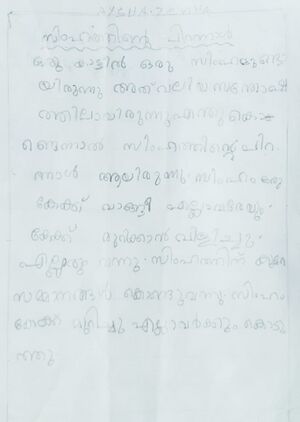 AYSHA-ZEHVA
സിംഹത്തിന്റെ പിറന്നാൾ
ഒരു കാട്ടിൽ ഒരു സിംഹമുണ്ടാ
യിരുന്നു അത് വലിയ സന്തോഷ
ത്തിലായിരുന്നു എന്തുകൊ
ണ്ടെന്നാൽ സിംഹത്തിന്റെ പിറ
ന്നാൾ ആയിരുന്നു. സിംഹം ഒരു
കേക്ക് വാങ്ങി എല്ലാവരേയും
കേക്ക് മുറിക്കാൻ വിളിച്ചു.
എല്ലാരും വന്നു. സിംഹത്തിന് കുറേ
സമ്മാനങ്ങൾ കൊണ്ടുവന്നു. സിംഹം
കേക്ക് മുറിച്ചു എല്ലാവർക്കും കൊടു
ത്തു